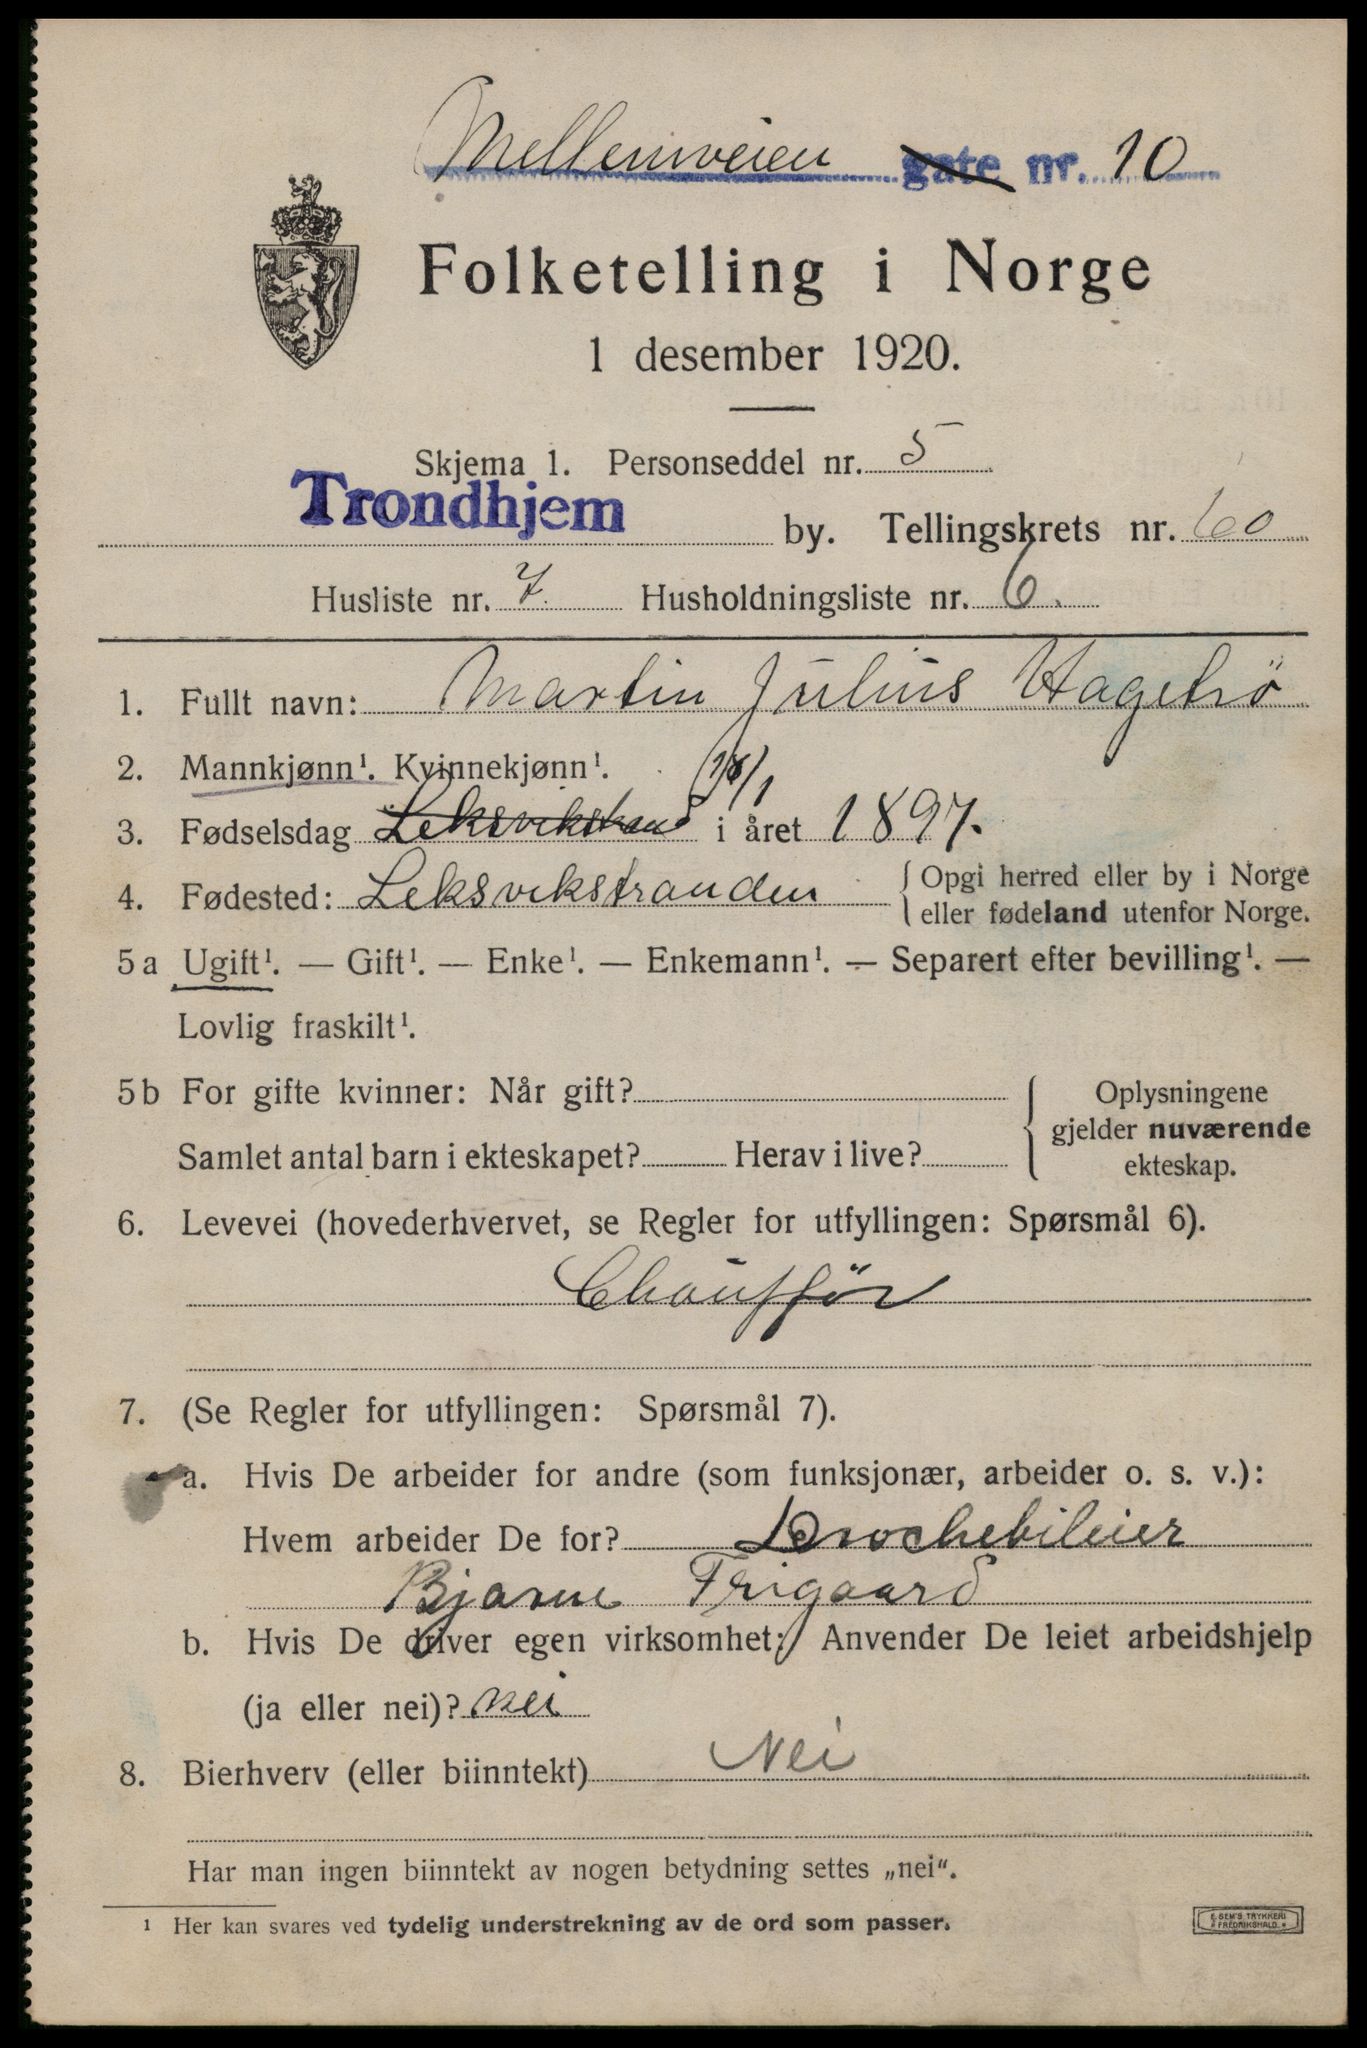 Mellemveien gate nr. 10
Folketelling i Norge
1 desember 1920.
Skjema 1. Personseddel nr. 5
Trondhjem by. Tellingskrets nr. 60
Husliste nr. 7. Husholdningsliste nr. 6.
1. Fullt navn: Martin Julius Hagetrö
2. Mannkjønn¹. Kvinnekjønn¹.
3. Fødselsdag Leksvikstrand i året 1897.
4. Fødested: Leksvikstranden {Opgi herred eller by i Norge
eller fødeland utenfor Norge.
5a Ugift¹. — Gift¹. — Enke¹. — Enkemann¹. — Separert efter bevilling¹. —
Lovlig fraskilt¹.
5b For gifte kvinner: Når gift? { Oplysningene
gjelder nuværende
Samlet antal barn i ekteskapet? Herav i live?
ekteskap.
6. Levevei (hovederhvervet, se Regler for utfyllingen: Spørsmål 6).
Chouffør
7. (Se Regler for utfyllingen: Spørsmål 7).
a. Hvis De arbeider for andre (som funksjonær, arbeider o. s. v.):
Hvem arbeider De for? Drochebileier
Bjarne Frigaard
b. Hvis De driver egen virksomhet: Anvender De leiet arbeidshjelp
(ja eller nei)? nei
8. Bierhverv (eller biinntekt) Nei
Har man ingen biinntekt av nogen betydning settes „nei“.
¹ Her kan svares ved tydelig understrekning av de ord som passer.
E. SEM'S TRYKKERI
FREDRIKSHALD.